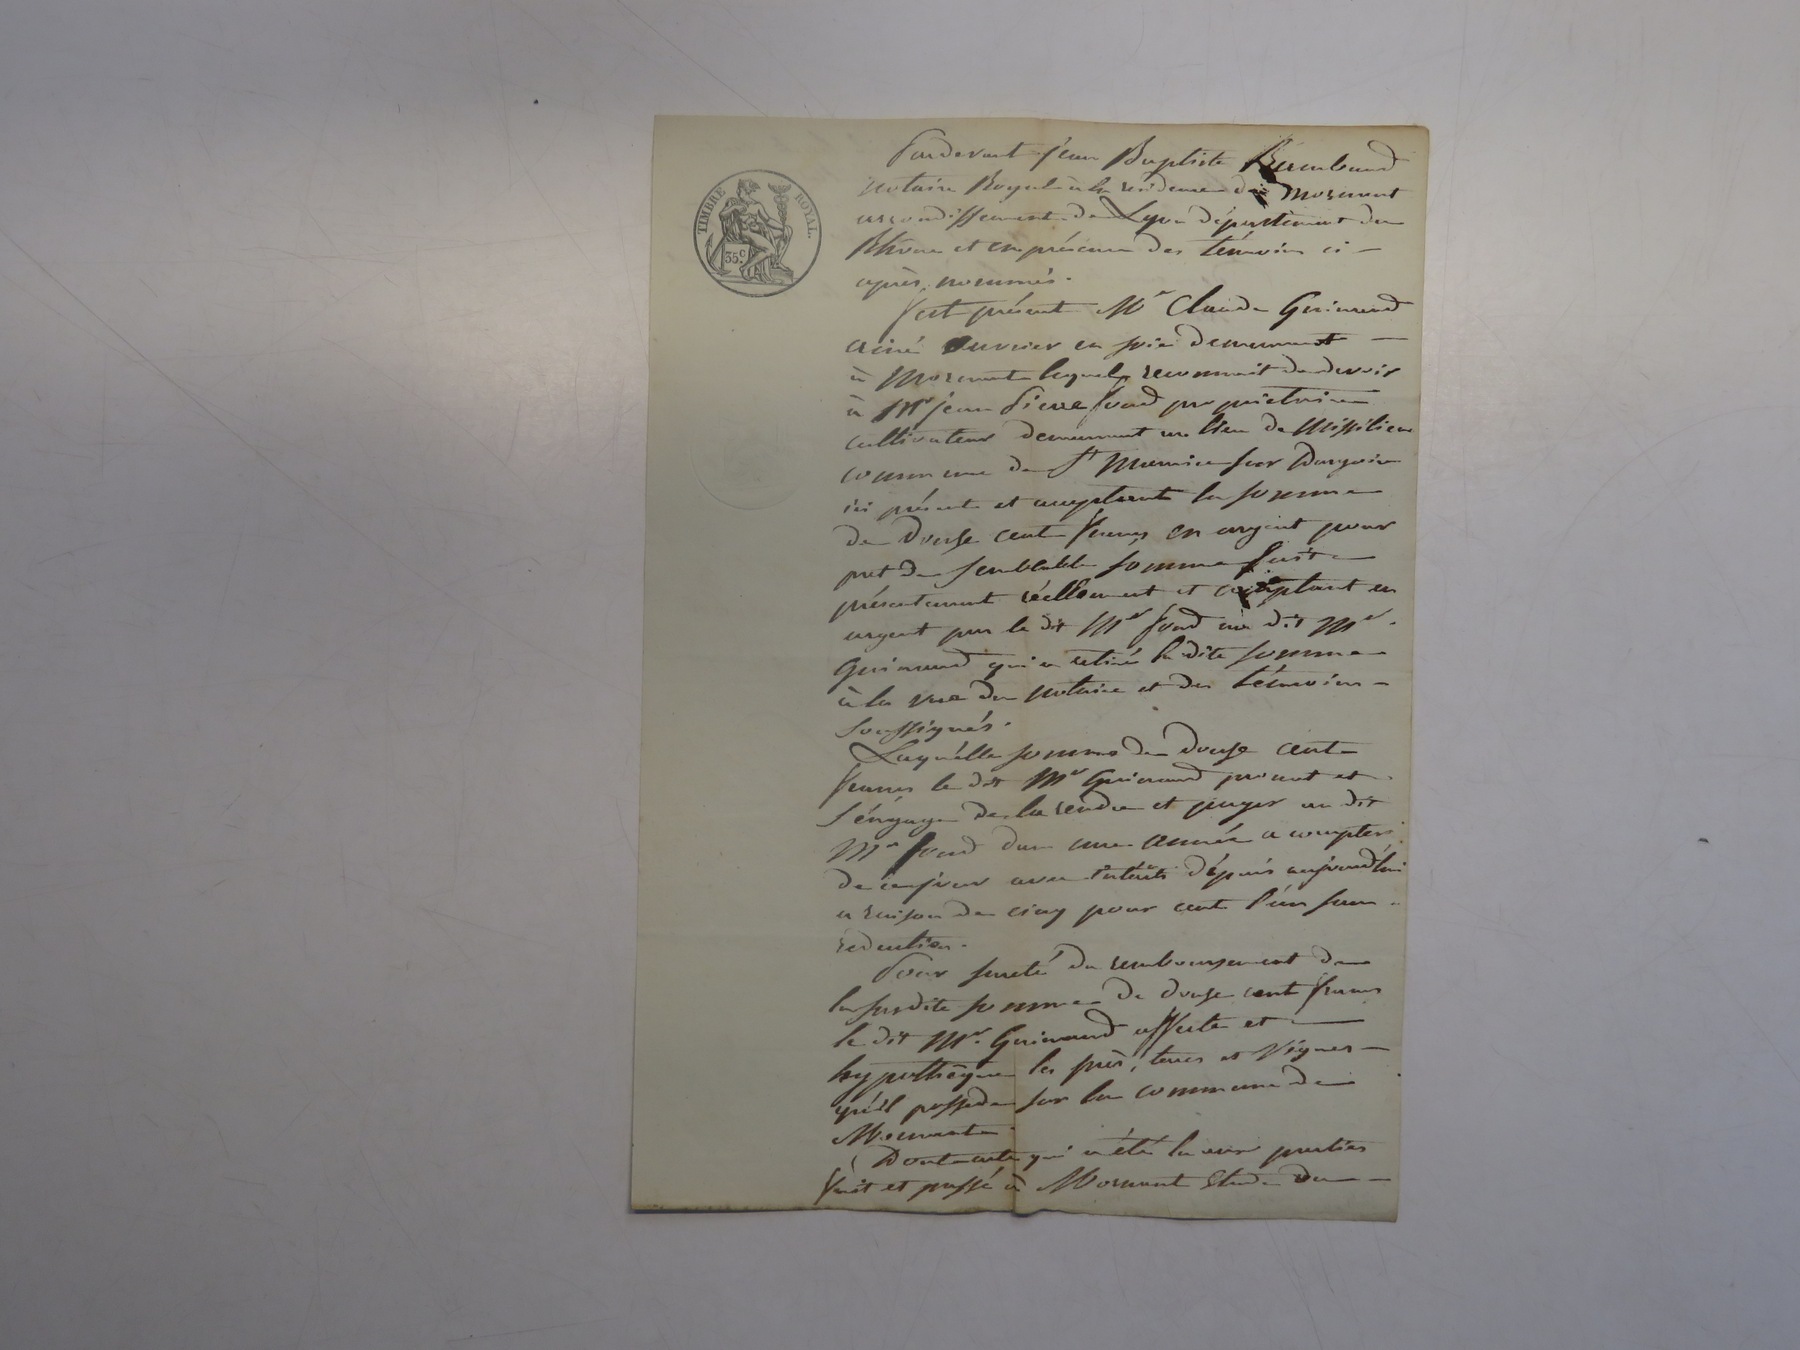 TIMBRE ROYAL.
35c
Pardevant jean Baptiste Rambaud
notaire Royal à la residence de Mornant
arrondissement de Lyon département du
Rhône et en présence des témoins ci -
après nommés.
S'est présent Mr Claude Guinand
ainé ouvrier en soie demeurant -
à Mornant lequel reconnait de devoir
à Mr jean Pierre fond propriétaire
cultivateur demeurant au lieu de Missilieu
commune de St Maurice sur Dargoire
ici présent et acceptant la somme
de douse cent francs en argent pour
pret de semblable somme fait
présentement réellement et comptant en
argent par le dit Mr fond au dit Mr.
Guinand qui a retiré la dite somme
à la vue du notaire et des témoins -
soussignés.
Laquélle somme de douse cent
francs le dit Mr Guinand promet et
s'éngage de la rendre et payer au dit
Mr fond dans une année a compter
de ce jour avec intérêts dépuis aujourd'hui
a raison de cinq pour cent l'an sans
redention.
Pour sureté du remboursement de
la susdite somme de douse cent francs
le dit Mr. Guinand affecte et
hypothèque les près, terres et vignes -
qu'il possede sur la commune de
Mornant.
Dont acte qui a été lu aux parties
fait et passé à Mornant Etude du -